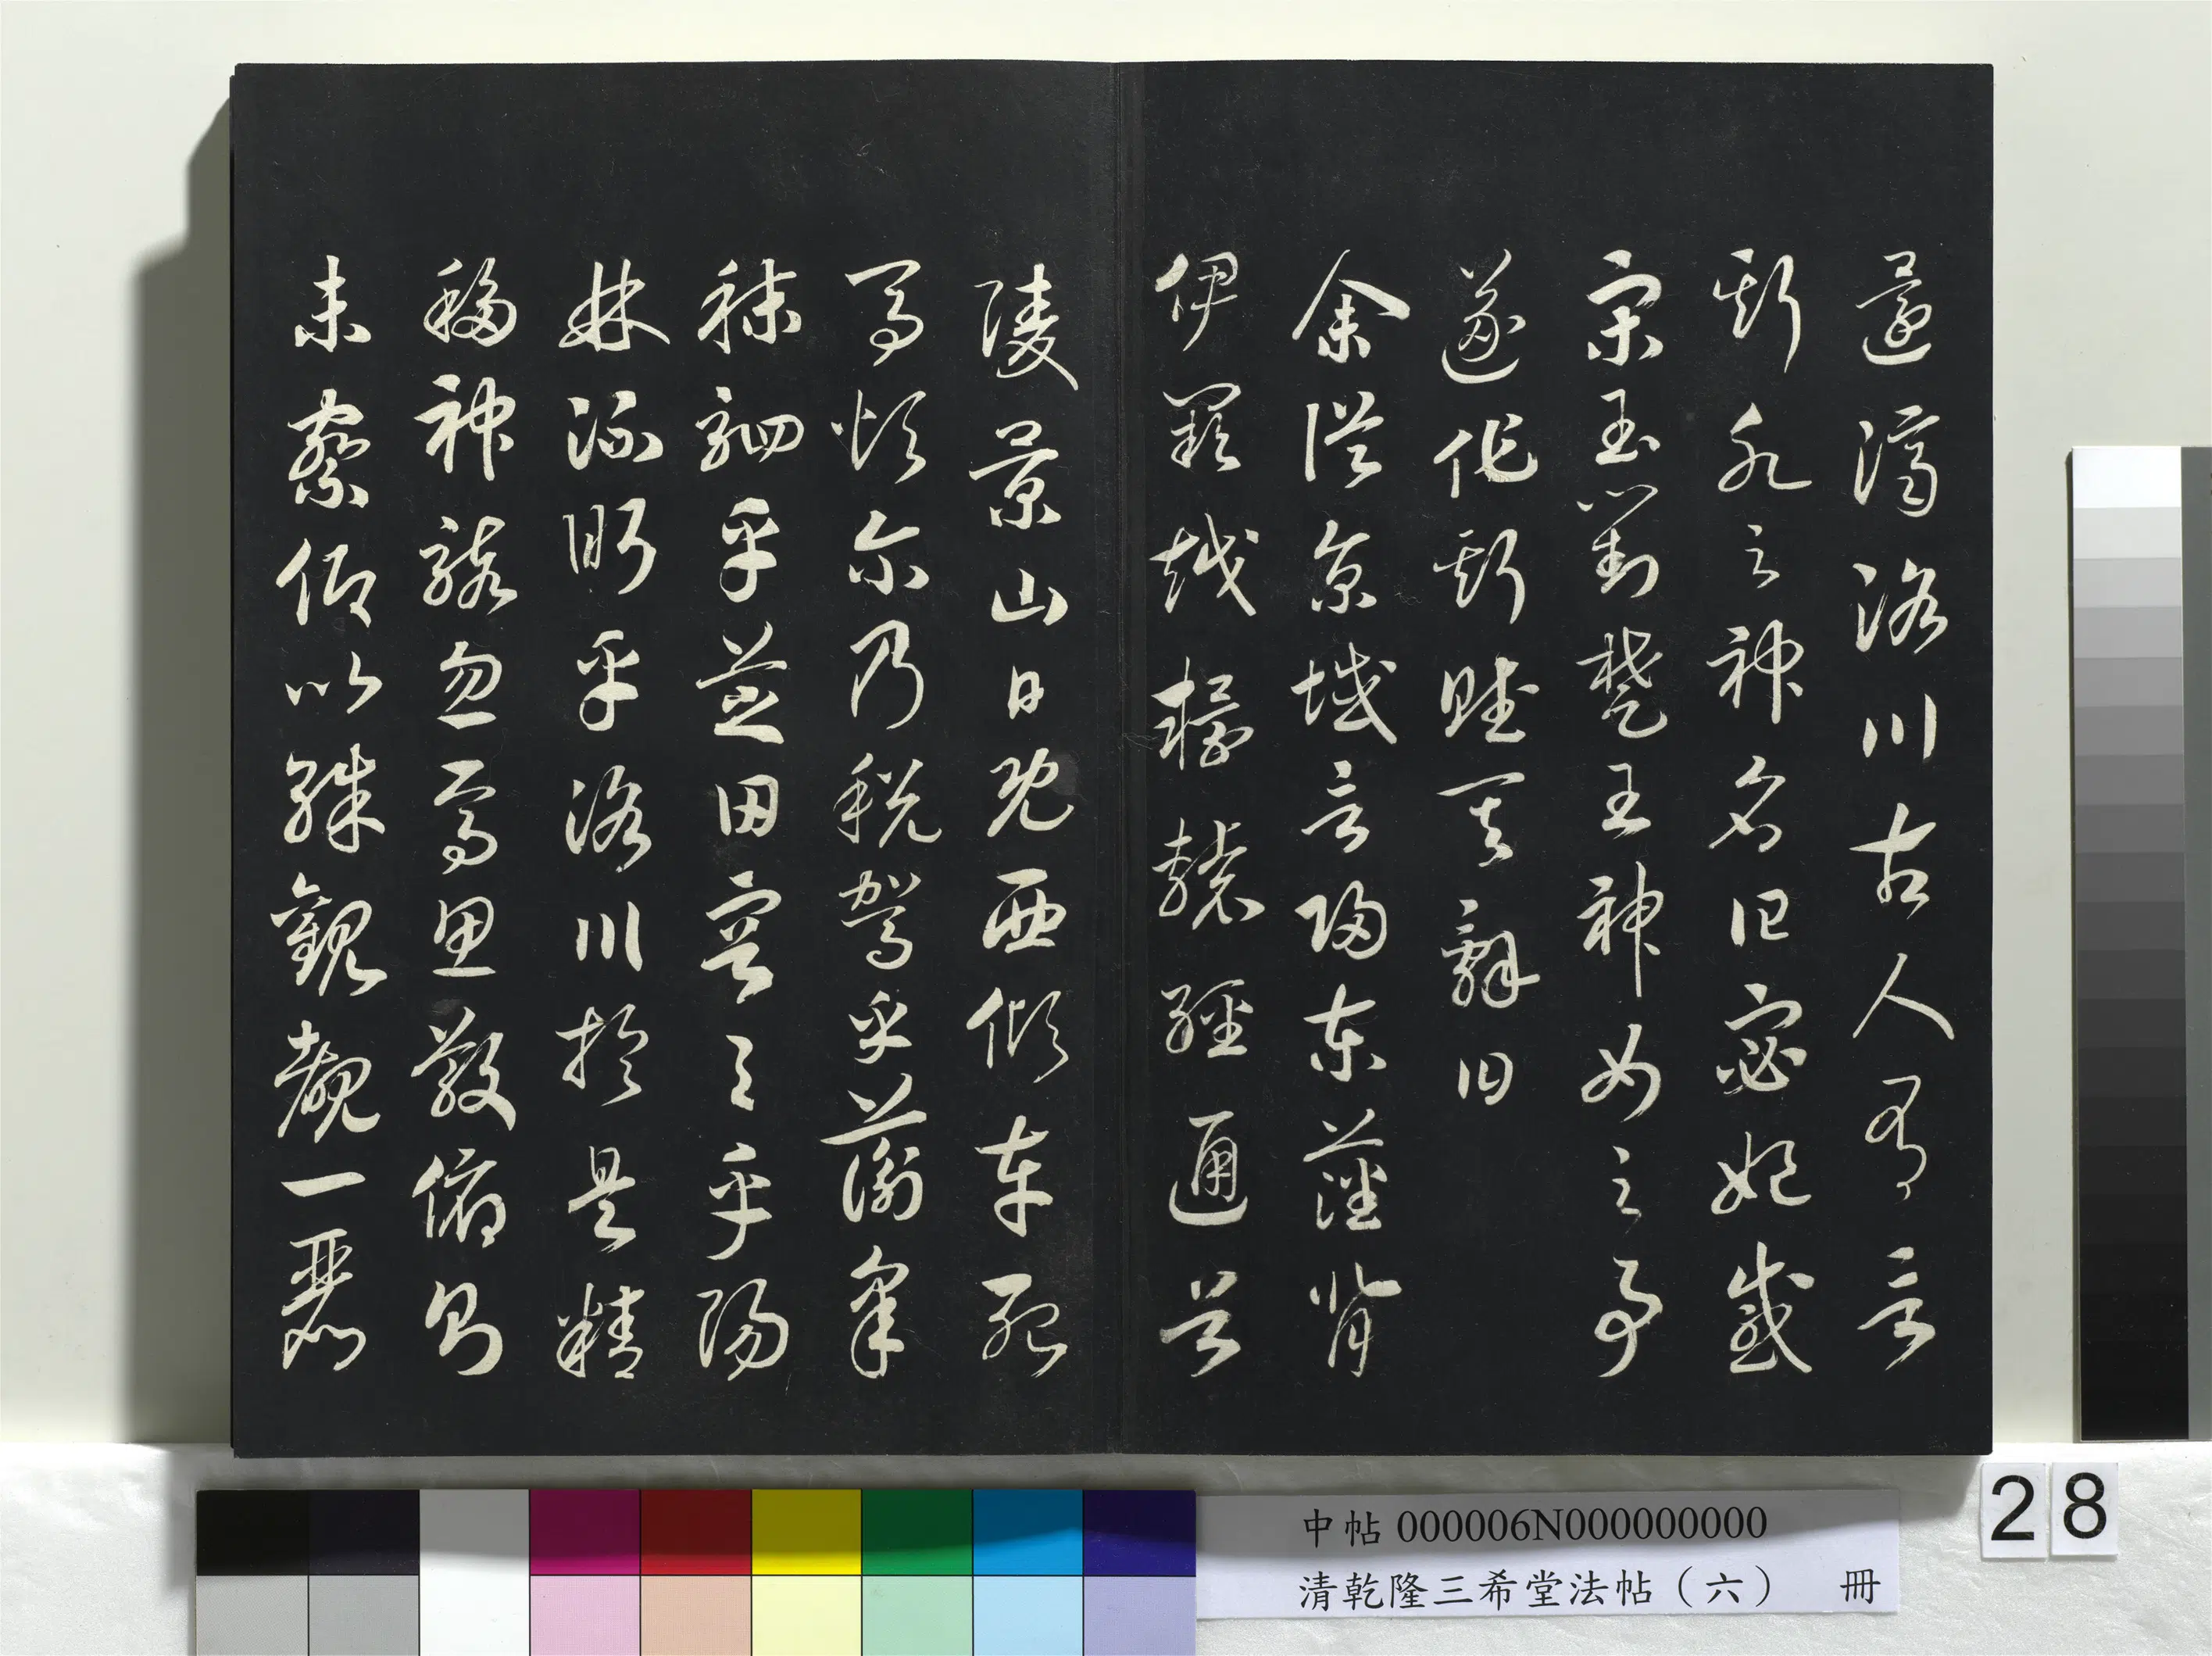 還濟洛川古人有言
斯水之神名曰宓妃感
宋玉對楚王神女之事
遂作斯賦其辭曰
余從京域言歸東藩背
伊闕越轘轅經通谷
陵景山日既西傾車殆
馬煩尔乃税駕乎蘅皋
秣駟乎芝田容與乎陽
林流眄乎洛川於是精
移神駭忽焉思散俯則
未察仰以殊觀覩一麗
28
中帖 000006N000000000
清乾隆三希堂法帖（六） 冊